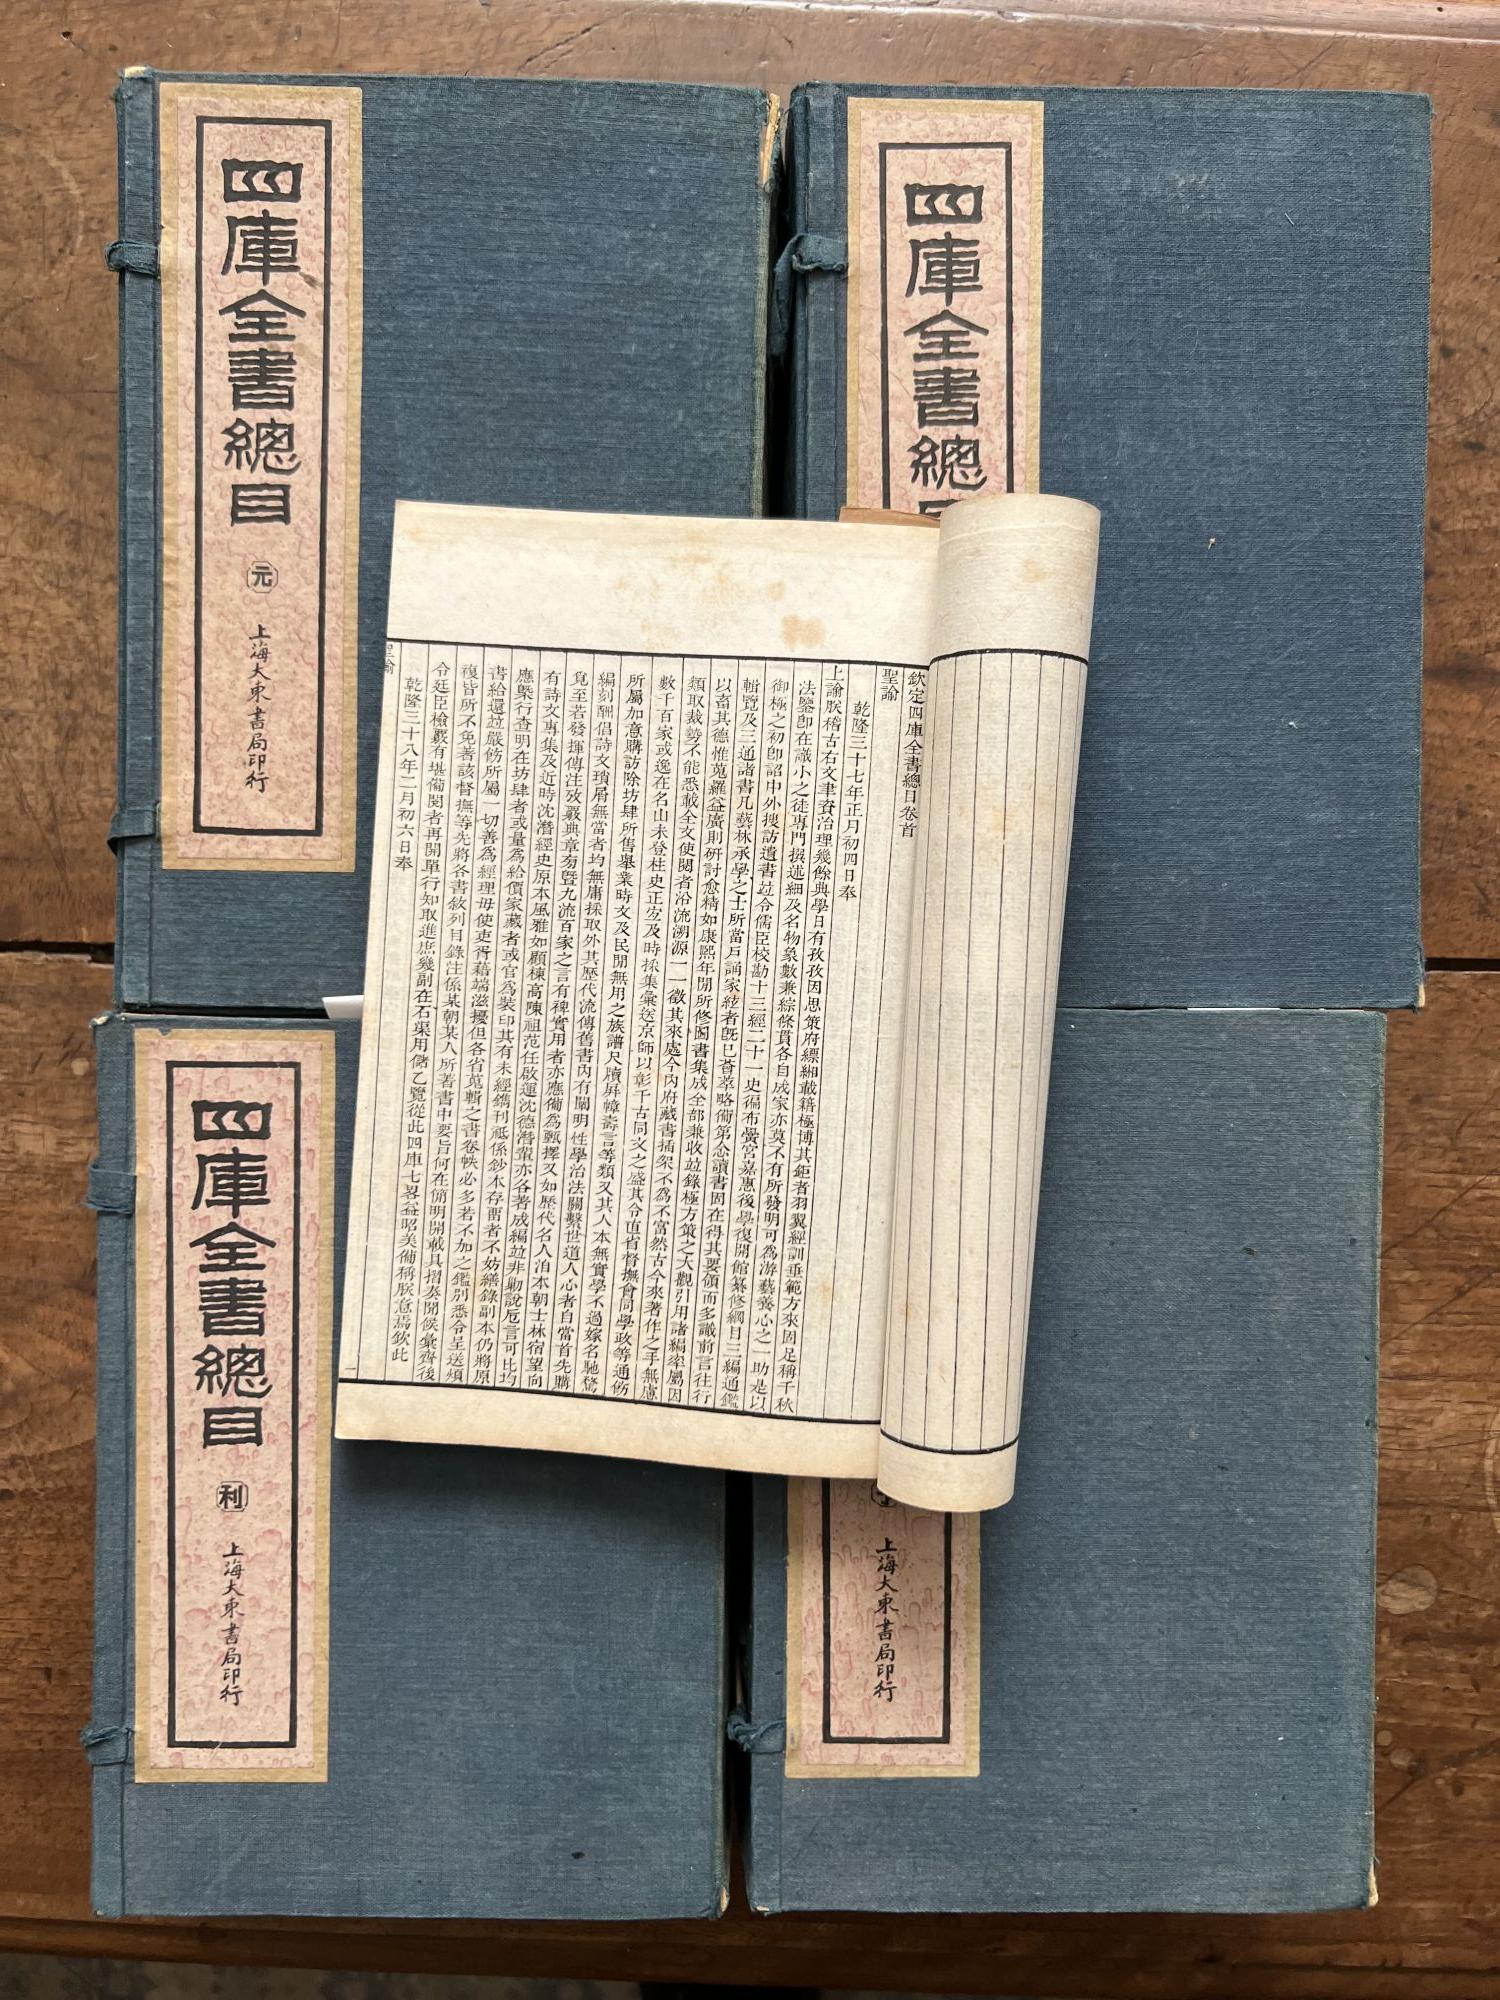 四庫全書總目
元
上海大東書局印行
四庫全書總目
四庫全書總目
利
上海大東書局印行
上海大東書局印行
欽定四庫全書總目卷首
聖諭
乾隆三十七年正月初四日奉
上諭朕稽古右文聿資治理幾餘典學日有孜孜因思策府縹緗載籍極博其鉅者羽翼經訓垂範方來固足稱千秋
法鑒卽在識小之徒專門撰述細及名物象數兼綜條貫各自成家亦莫不有所發明可爲游藝養心之一助是以
御極之初卽詔中外搜訪遺書竝令儒臣校勘十三經二十一史徧布黌宮嘉惠後學復開館纂修綱目三編通鑑
輯覽及三通諸書凡藝林承學之士所當戶誦家絃者旣已薈萃略備第念讀書固在得其要領而多識前言往行
以畜其德惟蒐羅益廣則研討愈精如康熙年閒所修圖書集成全部兼收竝錄極方策之大觀引用諸編率屬因
類取裁勢不能悉載全文使閱者沿流溯源一一徵其來處今內府藏書插架不爲不富然古今來著作之手無慮
數千百家或逸在名山未登柱史正宜及時採集彙送京師以彰千古同文之盛其令直省督撫會同學政等通飭
所屬加意購訪除坊肆所售舉業時文及民閒無用之族譜尺牘屛幛壽言等類又其人本無實學不過嫁名馳騖
編刻酬倡詩文瑣屑無當者均無庸採取外其歷代流傳舊書內有闡明性學治法關繫世道人心者自當首先購
覓至若發揮傳注攷覈典章旁暨九流百家之言有裨實用者亦應備爲甄擇又如歷代名人洎本朝士林宿望向
有詩文專集及近時沈潛經史原本風雅如顧棟高陳祖范任啟運沈德潛輩亦各著成編竝非勦說卮言可比均
應槩行查明在坊肆者或量爲給價家藏者或官爲裝印其有未經鐫刊祗係鈔本存畱者不妨繕錄副本仍將原
書給還竝嚴飭所屬一切善爲經理毋使吏胥藉端滋擾但各省蒐輯之書卷帙必多若不加之鑑別悉令呈送煩
複皆所不免著該督撫等先將各書敘列目錄注係某朝某人所著書中要旨何在簡明開載具摺奏聞候彙齊後
令廷臣檢覈有堪備閱者再開單行知取進庶幾副在石渠用儲乙覽從此四庫七畧益昭美備稱朕意焉欽此
乾隆三十八年二月初六日奉
聖諭
一